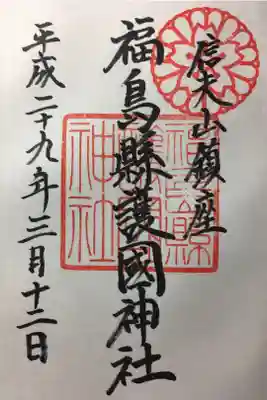 信夫山鎮座
福島縣護國神社
平成二十九年三月十二日
福島縣
神社